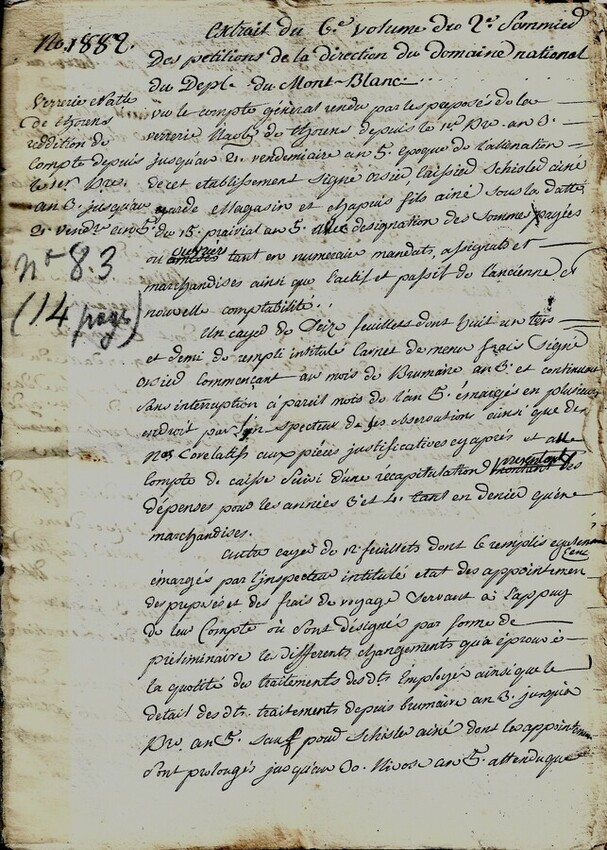 No. 1882.
Extrait du 6.e volume du 2.e Sommier
Des petitions de la direction du domaine national
du Dept. du Mont-Blanc
Verrerie Natle
de thorens
reddition de
Compte depuis
le 1er. Bre.
an 3. jusqu'au
21. vendre. an 5.
n° 83
(14 pages)
vu le compte général rendu par les preposés de la
verrerie Natle. de thorens depuis le 1er. Bre. an 3.
jusqu'au 21. vendemiaire an 5. époque de l'alienation
de cet etablissement signé orsied caissied Schisled ainé
garde Magasin et chapuis fils ainé sous la datte
du 15. prairial an 5. avec designation des Sommes payées
ou tant en numeraire mandats, assignats et
marchandises ainsi que l'actif et passif de l'ancienne et
nouvelle comptabilité..
Un cayed de Seize feuillets dont huit un tiers
et demi de rempli intitulé Carnet de menu frais Signé
orsied commençant au mois de Brumaire an 3. et continuant
Sans interruption à pareil mois de l'an 5. émargés en plusieurs
endroit par l'inspecteur de ses observations ainsi que des
nos. Corelatifs aux pièces justificatives cy après et au
Compte de caisse Suivi d'une récapitulation presentant les
dépenses pour les années 3. et 4. tant en denier qu'en
marchandises.
Autre cayed de 12. feuillets dont 6 remplis egalement
émargés par l'inspecteur intitulé etat des appointemens
des preposés et des frais de voyage Servant à l'appuy
de leur Compte où Sont désignés par forme de
préliminaire le differents changements qu'a éprouvé
la quotité des traitements des dts. Employés ainsi que le
detail des dts. traitements depuis brumaire an 3. jusqu'en
Bre. an 5. Sauf pour Schisled ainé dont les appointemens
Sont prolongés jusqu'au 30. Nivose an 5. attendu que